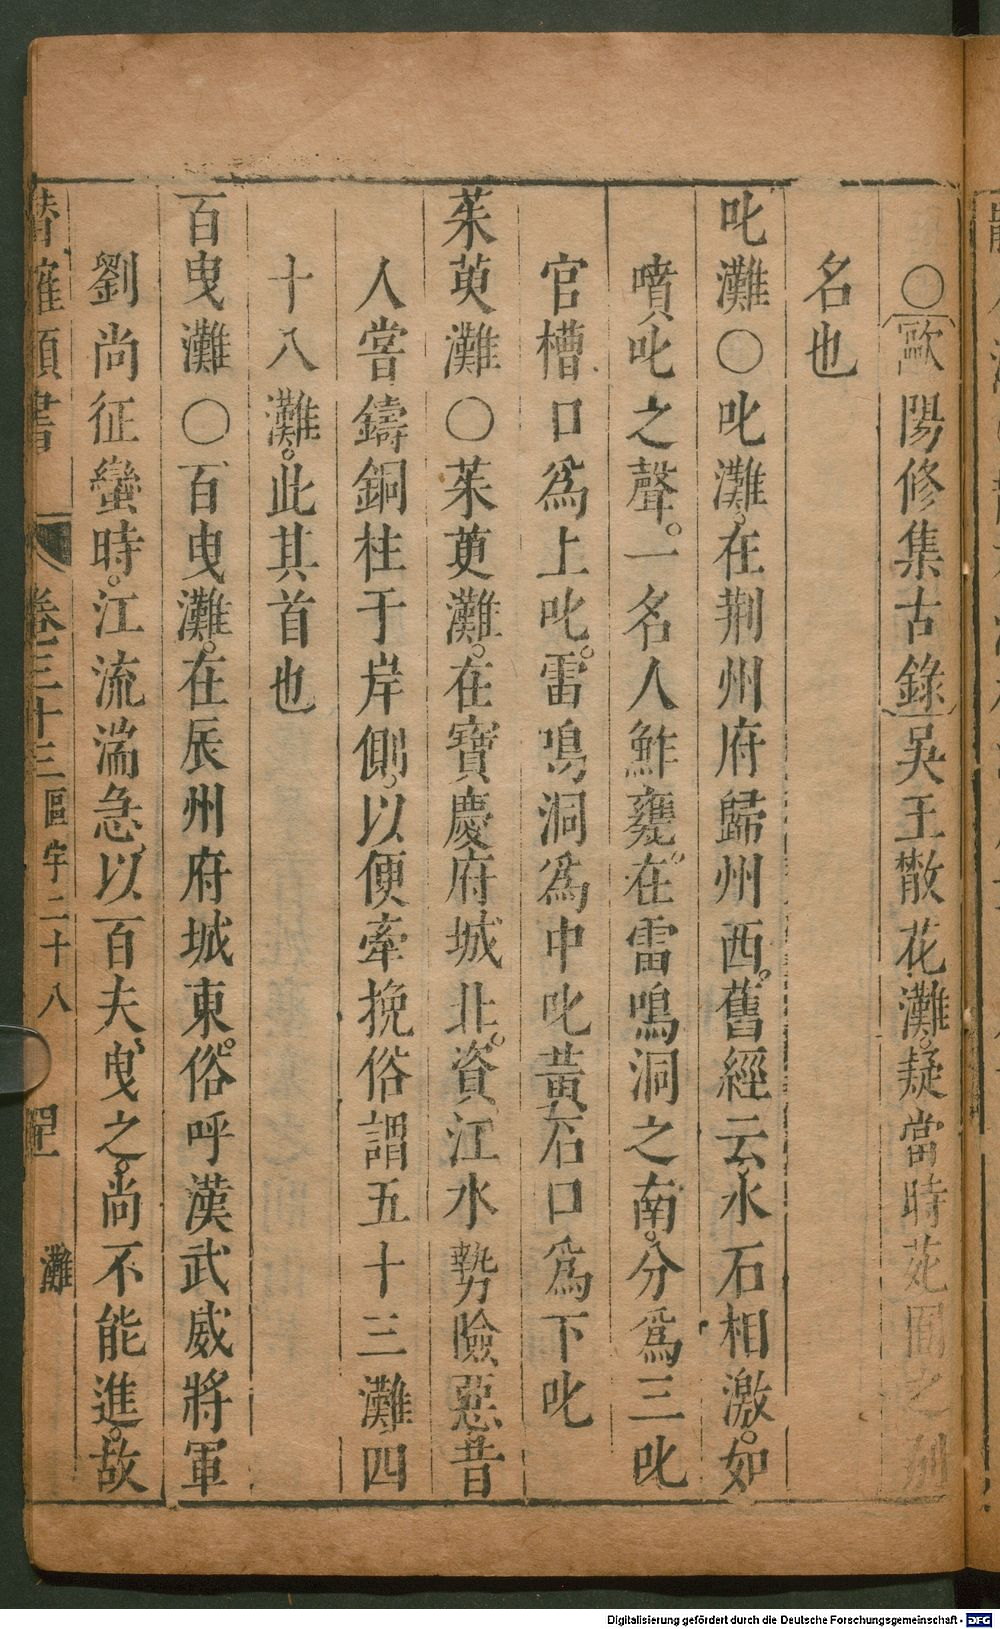 ○歐陽修集古錄吳王散花灘。疑當時苑囿之別
名也
叱灘○叱灘、在荆州府歸州西。舊經云、水石相激。如
噴叱之聲。一名人鮓甕。在雷鳴洞之南。分爲三叱
官槽口爲上叱。雷鳴洞爲中叱黃石口爲下叱
茱萸灘○茱萸灘。在寶慶府城北。資江水勢險惡。昔
人嘗鑄銅柱于岸側、以便牽挽俗謂五十三灘、四
十八灘。此其首也
百曳灘○百曳灘。在辰州府城東。俗呼漢武威將軍
劉尚征蠻時。江流湍急、以百夫曳之。尚不能進。故
潛確類書 卷之三十三 區宇二十八 灘
Digitalisierung gefördert durch die Deutsche Forschungsgemeinschaft - DFG